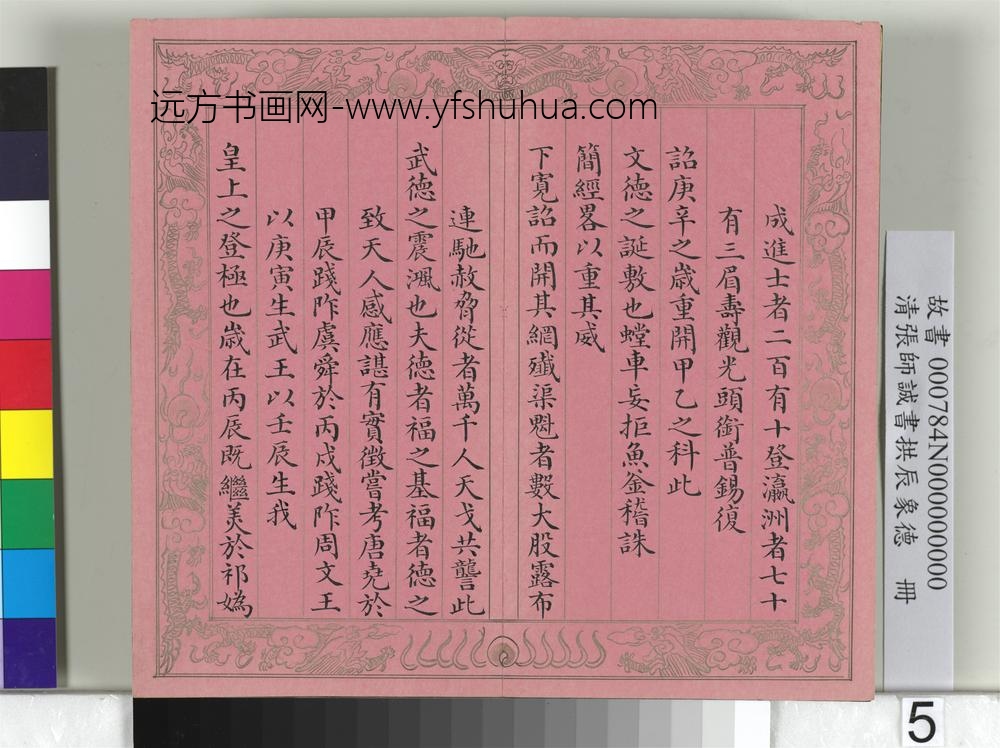 远方书画网-www.yfshuhua.com
成進士者二百有十登瀛洲者七十
有三眉壽觀光頭銜普錫復
詔庚辛之歲重開甲乙之科此
文德之誕敷也螳車妄拒魚釜稽誅
簡經畧以重其威
下寬詔而開其網殲渠魁者數大股露布
連馳赦脅從者萬千人天戈共讋此
武德之震渢也夫德者福之基福者德之
致天人感應諶有實徵嘗考唐堯於
甲辰踐阼虞舜於丙戌踐阼周文王
以庚寅生武王以壬辰生我
皇上之登極也歲在丙辰既繼美於祁媯
故書 000784N000000000
清張師誠書拱辰象德 冊
5